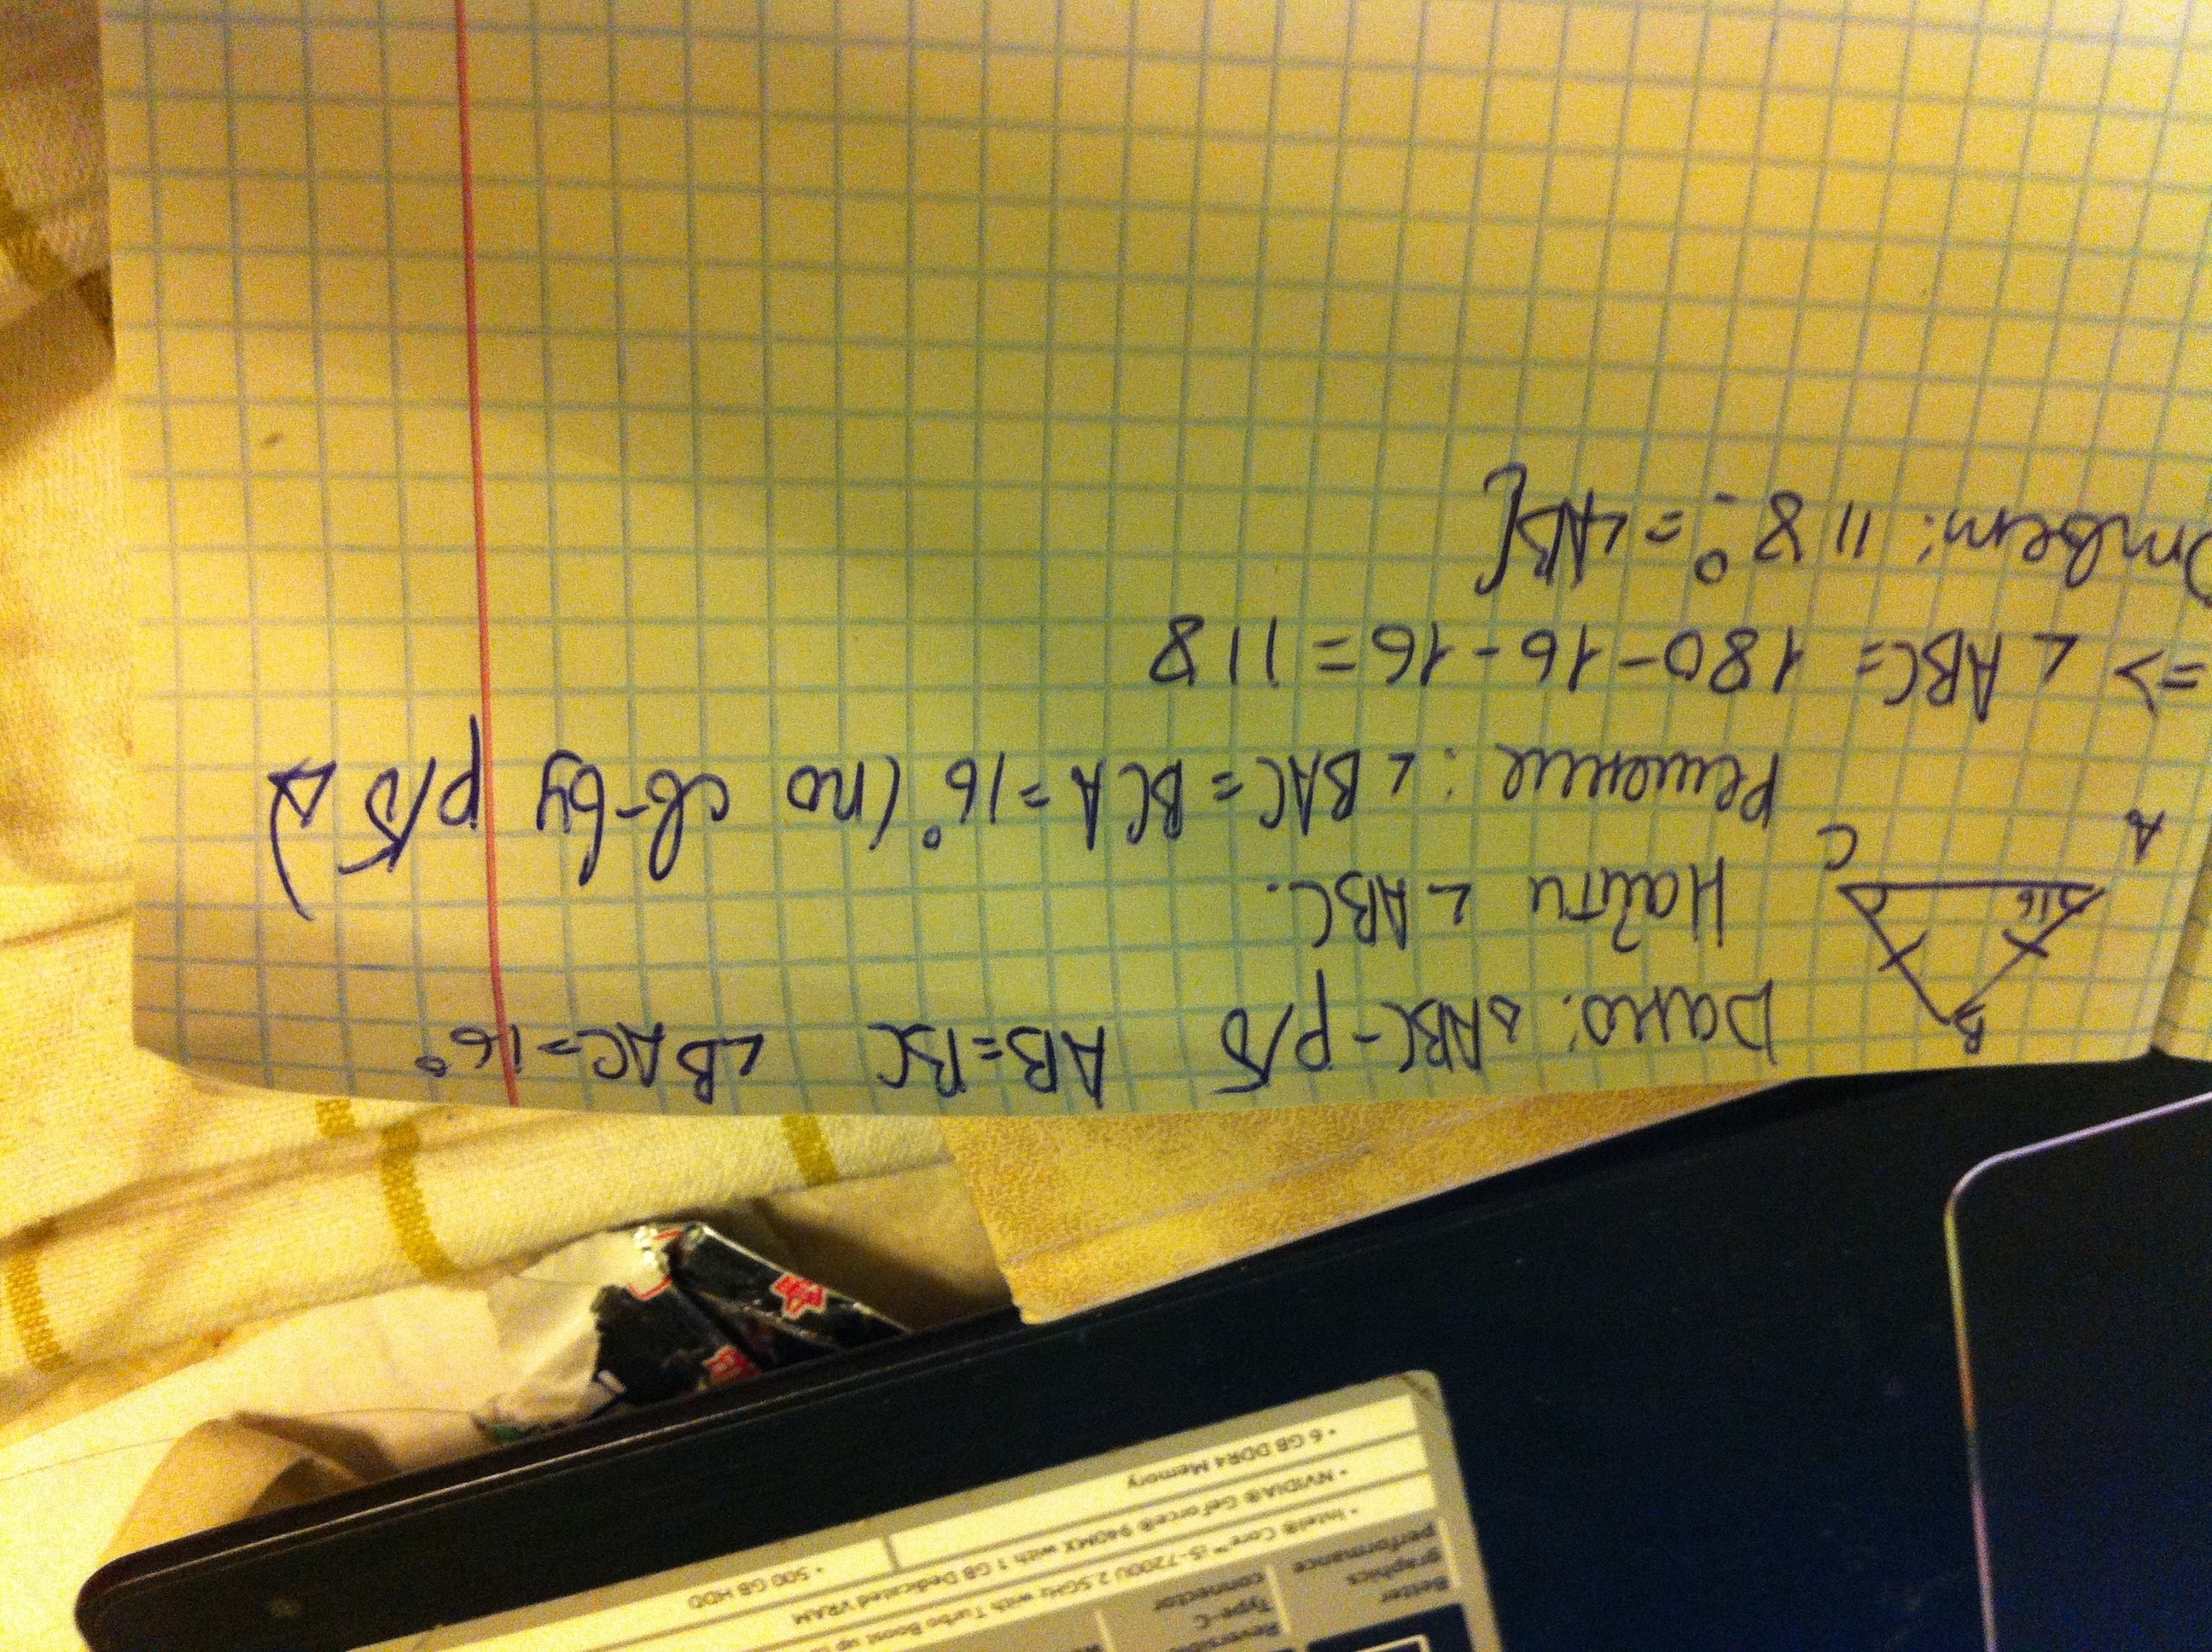 Дано: △ABC-р/б AB=BC ∠BAC=16°
Найти ∠ABC.
B
16
A
C
Решение: ∠BAC=BCA=16° (по св-ву р/б △)
=> ∠ABC= 180-16-16=118
Ответ: 118°=∠ABC
Better
graphics
performance
Type-C
connector
• Intel® Core™ i5-7200U 2.5GHz with Turbo Boost up
• NVIDIA® GeForce® 940MX with 1 GB Dedicated VRAM
• 6 GB DDR4 Memory
• 500 GB HDD